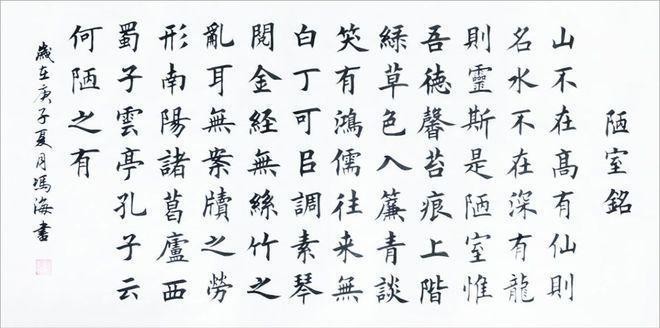 陋室銘
山不在髙有仙則
名水不在深有龍
則靈斯是陋室惟
吾徳馨苔痕上階
緑草色入簾青談
笑有鴻儒往来無
白丁可㠯調素琴
閲金経無絲竹之
亂耳無案牘之勞
形南陽諸葛廬西
蜀子雲亭孔子云
何陋之有
歲在庚子夏月馮海書